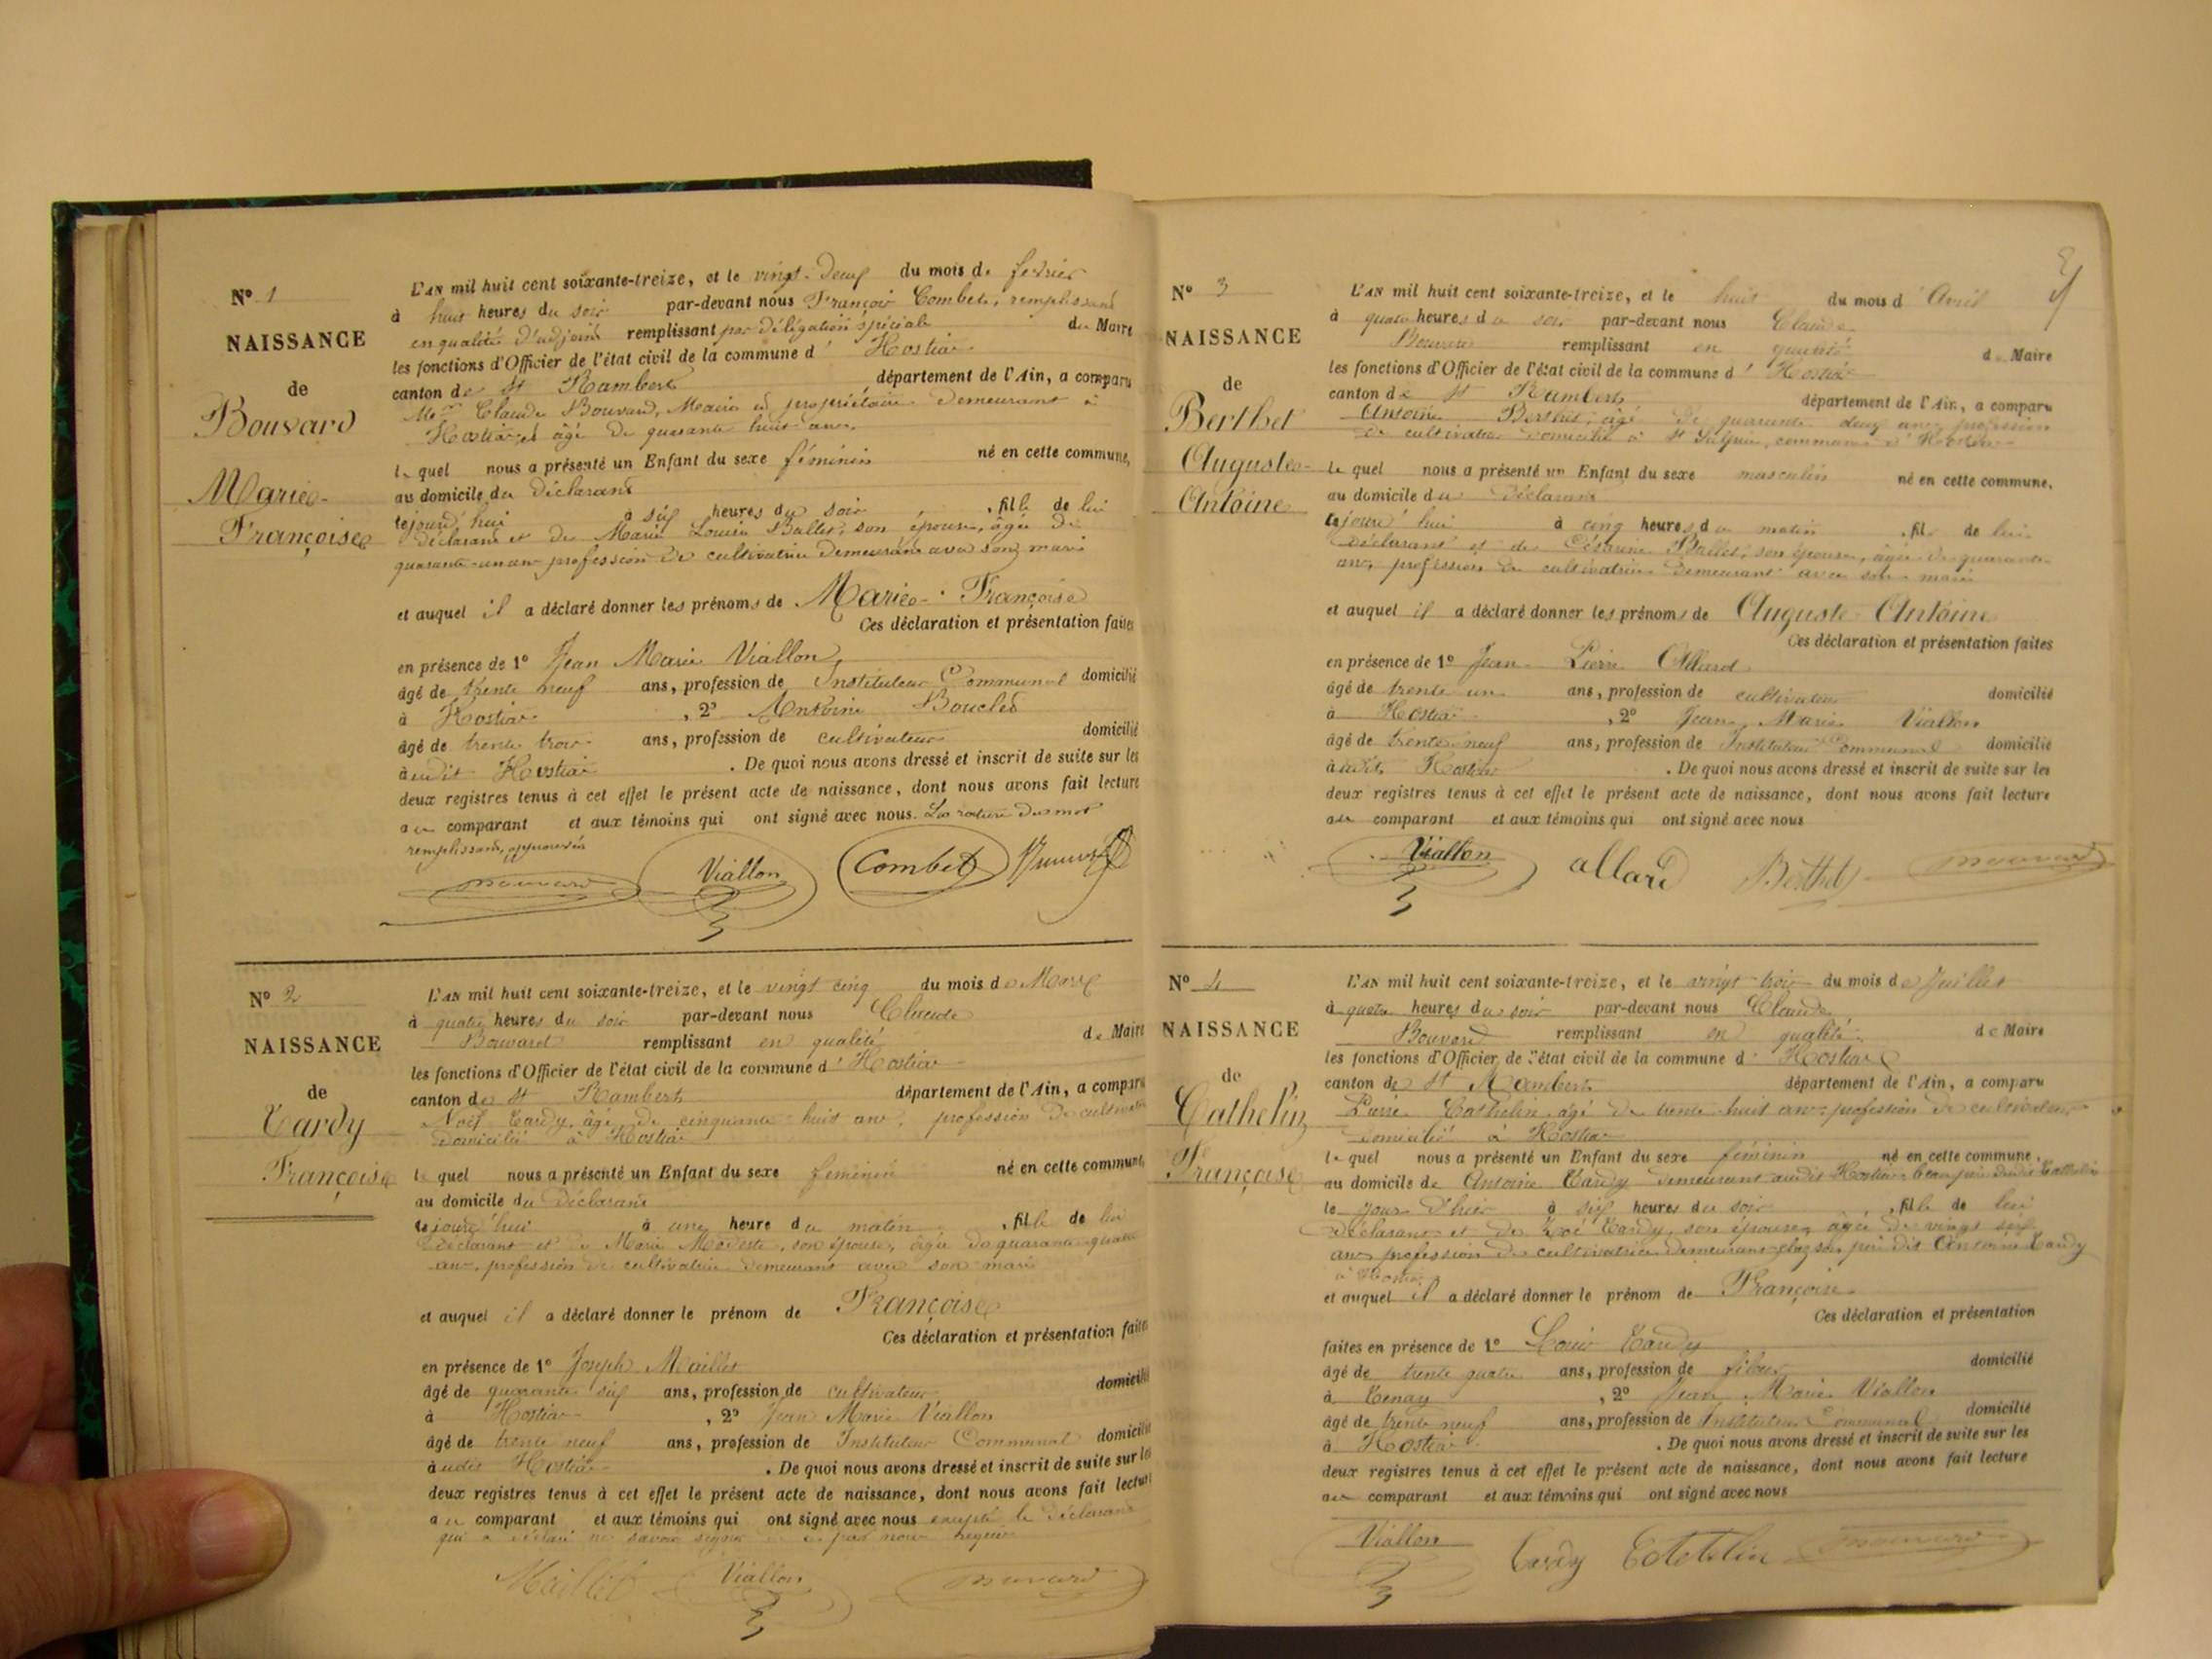 Nº 1
NAISSANCE
de
Bouvard
Marie-
Françoise
L'AN mil huit cent soixante-treize, et le vingt-deux du mois de février
à huit heures du soir par-devant nous François Combet, remplissant
en qualité d'adjoint remplissant par délégation spéciale du Maire
les fonctions d'Officier de l'état civil de la commune d' Hostiaz
canton de St Rambert département de l'Ain, a comparu
Claude Bouvard, Maire et propriétaire demeurant à
Hostiaz âgé de quarante huit ans
lequel nous a présenté un Enfant du sexe féminin né en cette commune,
au domicile du déclarant
cejourd'hui à six heures du soir, fille de lui
déclarant et de Marie Louise Ballet, son épouse, âgée de
quarante-un ans profession de cultivatrice demeurant avec son mari
et auquel il a déclaré donner les prénoms de Marie-Françoise
Ces déclaration et présentation faites
en présence de 1º Jean Marie Viallon,
âgé de trente neuf ans, profession de Instituteur Communal domicilié
à Hostiaz, 2º Antoine
âgé de trente trois ans, profession de cultivateur domicilié
audit Hostiaz. De quoi nous avons dressé et inscrit de suite sur les
deux registres tenus à cet effet le présent acte de naissance, dont nous avons fait lecture
au comparant et aux témoins qui ont signé avec nous. La rature du mot
remplissant, approuvée
Bouvard Viallon Combet
Nº 2
NAISSANCE
de
Tardy
Françoise
L'AN mil huit cent soixante-treize, et le vingt cinq du mois de Mars
à quatre heures du soir par-devant nous Claude
Bouvard remplissant en qualité de Maire
les fonctions d'Officier de l'état civil de la commune d' Hostiaz
canton de St Rambert département de l'Ain, a comparu
Noël Tardy, âgé de cinquante huit ans, profession de cultivateur
domicilié à Hostiaz
lequel nous a présenté un Enfant du sexe féminin né en cette commune,
au domicile du déclarant
cejourd'hui à une heure du matin, fille de lui
déclarant et de Marie Modeste, son épouse, âgée de quarante quatre
ans, profession de cultivatrice demeurant avec son mari
et auquel il a déclaré donner le prénom de Françoise
Ces déclaration et présentation faites
en présence de 1º Joseph Maillet
âgé de quarante six ans, profession de cultivateur domicilié
à Hostiaz, 2º Jean Marie Viallon
âgé de trente neuf ans, profession de Instituteur Communal domicilié
audit Hostiaz. De quoi nous avons dressé et inscrit de suite sur les
deux registres tenus à cet effet le présent acte de naissance, dont nous avons fait lecture
au comparant et aux témoins qui ont signé avec nous excepté le déclarant
qui a déclaré ne savoir signer de ce par nous requis
Maillet Viallon Bouvard
Nº 3
NAISSANCE
de
Berthet
Auguste-
Antoine
L'AN mil huit cent soixante-treize, et le huit du mois d'Avril
à quatre heures du soir par-devant nous Claude
Bouvard remplissant en qualité de Maire
les fonctions d'Officier de l'état civil de la commune d' Hostiaz
canton de St Rambert département de l'Ain, a comparu
Antoine Berthet, âgé de quarante deux ans, profession
de cultivateur domicilié à St Sulpice, commune d'Hostiaz
lequel nous a présenté un Enfant du sexe masculin né en cette commune,
au domicile du déclarant
cejourd'hui à cinq heures du matin, fils de lui
déclarant et de Césarine Ballet, son épouse, âgée de quarante
ans, profession de cultivatrice demeurant avec son mari
et auquel il a déclaré donner les prénoms de Auguste-Antoine
Ces déclaration et présentation faites
en présence de 1º Jean-Pierre Allard
âgé de trente un ans, profession de cultivateur domicilié
à Hostiaz, 2º Jean Marie Viallon
âgé de trente neuf ans, profession de Instituteur Communal domicilié
audit Hostiaz. De quoi nous avons dressé et inscrit de suite sur les
deux registres tenus à cet effet le présent acte de naissance, dont nous avons fait lecture
au comparant et aux témoins qui ont signé avec nous
Viallon allard Berthet Bouvard
Nº 4
NAISSANCE
de
Cathelin
Françoise
L'AN mil huit cent soixante-treize, et le vingt trois du mois de Juillet
à quatre heures du soir par-devant nous Claude
Bouvard remplissant en qualité de Maire
les fonctions d'Officier de l'état civil de la commune d' Hostiaz
canton de St Rambert département de l'Ain, a comparu
Pierre Cathelin âgé de trente huit ans profession de cultivateur
domicilié à Hostiaz
lequel nous a présenté un Enfant du sexe féminin né en cette commune,
au domicile de Antoine Tardy demeurant audit Hostiaz beau père dudit Cathelin
le jour d'hier à six heures du soir, fille de lui
déclarant et de Zoé Tardy, son épouse, âgée de vingt six
ans profession de cultivatrice demeurant chez son père dit Antoine Tardy
à Hostiaz
et auquel il a déclaré donner le prénom de Françoise
Ces déclaration et présentation
faites en présence de 1º Louis Tardy
âgé de trente quatre ans, profession de domicilié
à Tenay, 2º Jean Marie Viallon
âgé de trente neuf ans, profession de Instituteur Communal domicilié
à Hostiaz. De quoi nous avons dressé et inscrit de suite sur les
deux registres tenus à cet effet le présent acte de naissance, dont nous avons fait lecture
au comparant et aux témoins qui ont signé avec nous
Viallon Tardy Catelin Bouvard